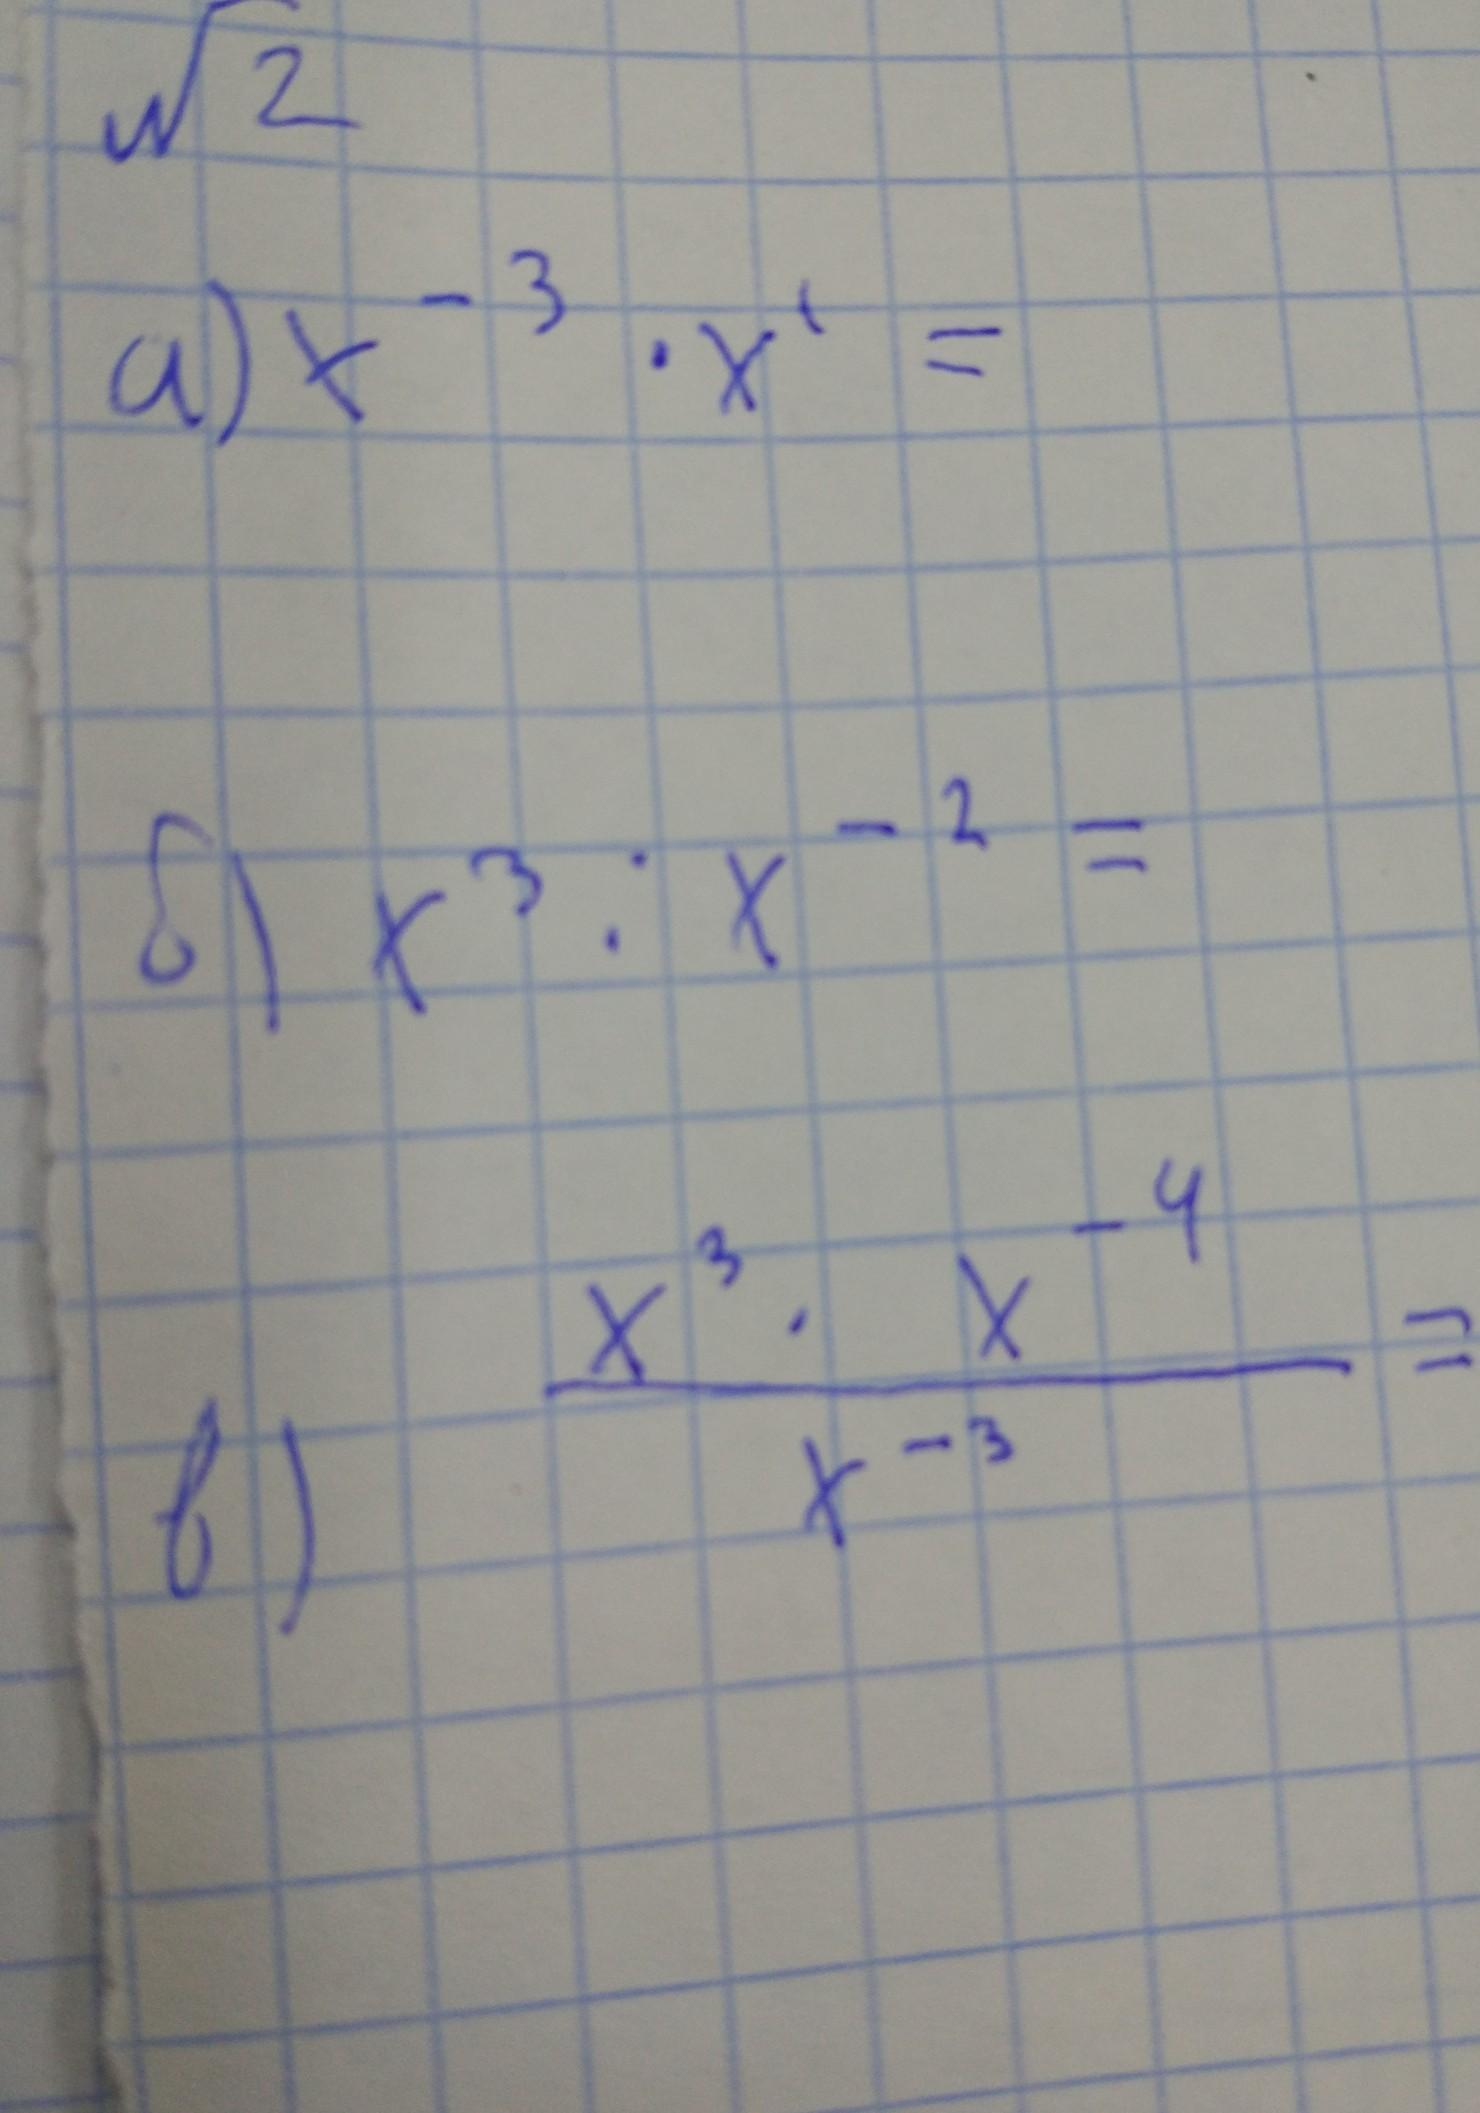 √2
а) x⁻³ · x¹ =
б) x³ : x⁻² =
в) (x³ · x⁻⁴) / x⁻³ =